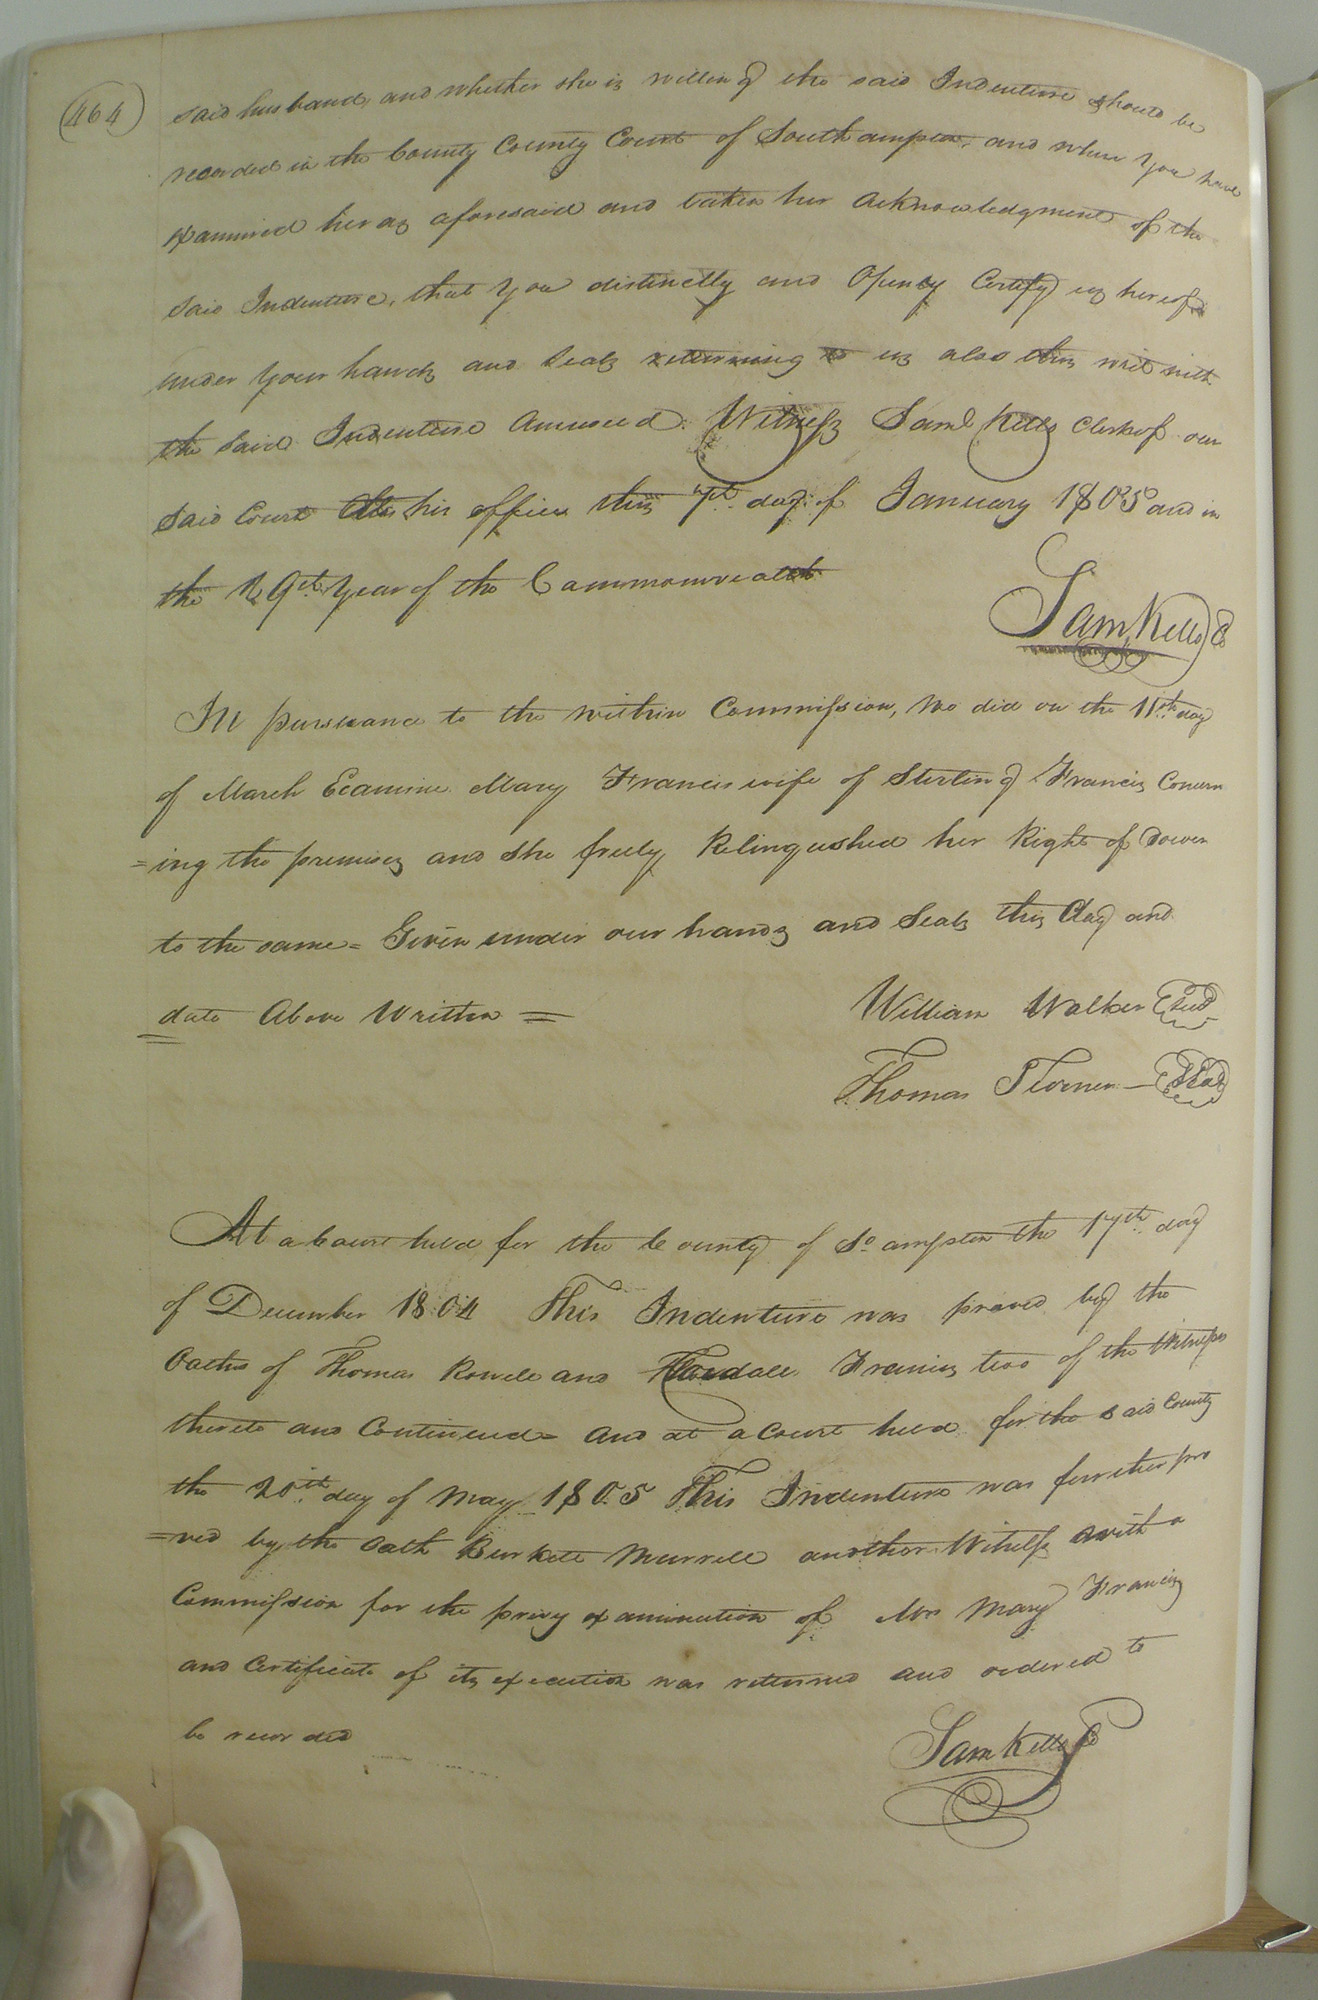 464
said husband, and whether she is willing the said Indenture should be
recorded in the County County Court of Southampton, and when you have
Examined her as aforesaid and taken her acknowledgment of the
said Indenture, that you distinctly and Openly Certify us hereof
under your hands and Seals returning to us also this writ with
the said Indenture Annexed. Witness Saml Kello Clerk of our
said Court at his office this 7th day of January 1805 and in
the 29th year of the Commonwealth
Sam, Kello C
In pursuance to the within Commission, we did on the 11th day
of March Examine Mary Francis wife of Sterling Francis Concern
=ing the premises and she freely Relinquished her Right of Dower
to the same = Given under our hands and Seals this day and
date Above Written =
William Walker Seal
Thomas Turner — Seal
At a Court held for the County of So ampton the 17th day
of December 1804 This Indenture was proved by the
Oaths of Thomas Rowell and Francis two of the Witness
thereto and Continued = And at a Court held for the said County
the 20th day of May 1805 This Indenture was further pro
=ved by the Oath Burkett Murrell another Witness with a
Commission for the privy examination of Mrs Mary Francis
and Certificate of its execution was returned and ordered to
be recorded
Sam Kello C